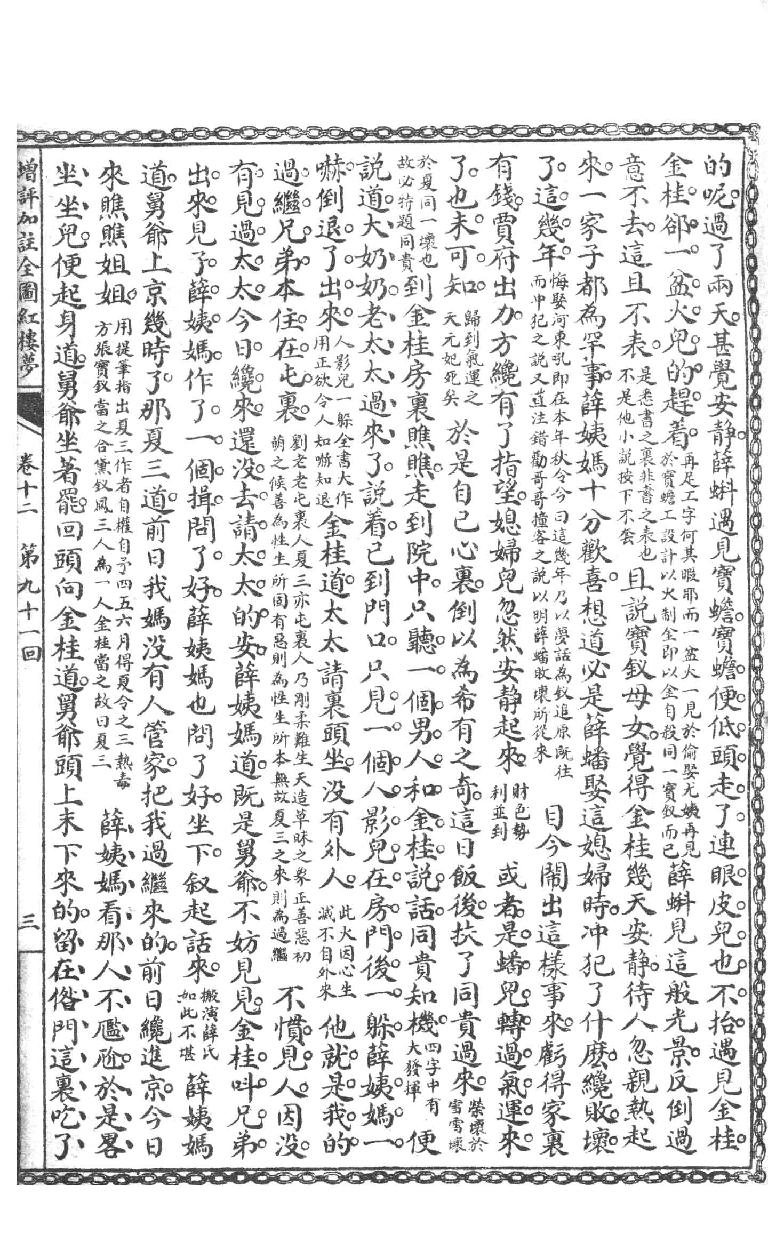 的呢過了兩天甚覺安靜薛蝌遇見寶蟾寶蟾便低頭走了連眼皮兒也不抬遇見金桂
金桂卻一盆火兒的趕着再足工字何其暇耶而一盆火一見於偷娶尤姨再見於寶蟾工設計以火制金即以金自殺同一寶釵而已薛蝌見這般光景反倒過
意不去這且不表是悉書之裏非書之表也不是他小說按下不套且說寶釵母女覺得金桂幾天安靜待人忽親熱起
來一家子都為罕事薛姨媽十分歡喜想道必是薛蟠娶這媳婦時冲犯了什麼纔敗壞
了這幾年悔娶河東吼即在本年秋令今曰這幾年乃以夢話為釵追原既往而冲犯之說又遥注錯勸哥哥撞客之說以明薛蟠敗壞所從來目今鬧出這樣事來虧得家裏
有錢賈府出力方纔有了指望媳婦兒忽然安靜起來財色勢利並到或者是蟠兒轉過氣運來
了也未可知歸到氣運之天元妃死矣於是自己心裏倒以為希有之奇這日飯後扶了同貴過來榮壞於雪雪壞
於夏同一壞也故必特題同貴到金桂房裏瞧瞧走到院中只聽一個男人和金桂說話同貴知機四字中有大發揮便
說道大奶奶老太太過來了說着已到門口只見一個人影兒在房門後一躲薛姨媽一
嚇倒退了出來人影兒一躲全書大作用正欲令人知嚇知退金桂道太太請裏頭坐沒有外人此火因心生滅不自外來他就是我的
過繼兄弟本住在屯裏劉老老屯裏人夏三亦屯裏人乃剛柔難生天造草昧之象正善惡初萌之候善為性生所固有惡則為性生所本無故夏三之來則為過繼不慣見人因沒
有見過太太今日纔來還沒去請太太的安薛姨媽道既是舅爺不妨見見金桂叫兄弟
出來見了薛姨媽作了一個揖問了好薛姨媽也問了好坐下叙起話來搬演薛氏如此不堪薛姨媽
道舅爺上京幾時了那夏三道前日我媽沒有人管家把我過繼來的前日纔進京今日
來瞧瞧姐姐用提筆指出夏三作者自權自予四五六月得夏令之三熱毒方張寶釵當之合黛釵鳳三人為一人金桂當之故曰夏三薛姨媽看那人不尶尬於是畧
坐坐兒便起身道舅爺坐著罷回頭向金桂道舅爺頭上末下來的留在偺門這裏吃了
增評加註全圖紅樓夢
卷十二
第九十一回
三